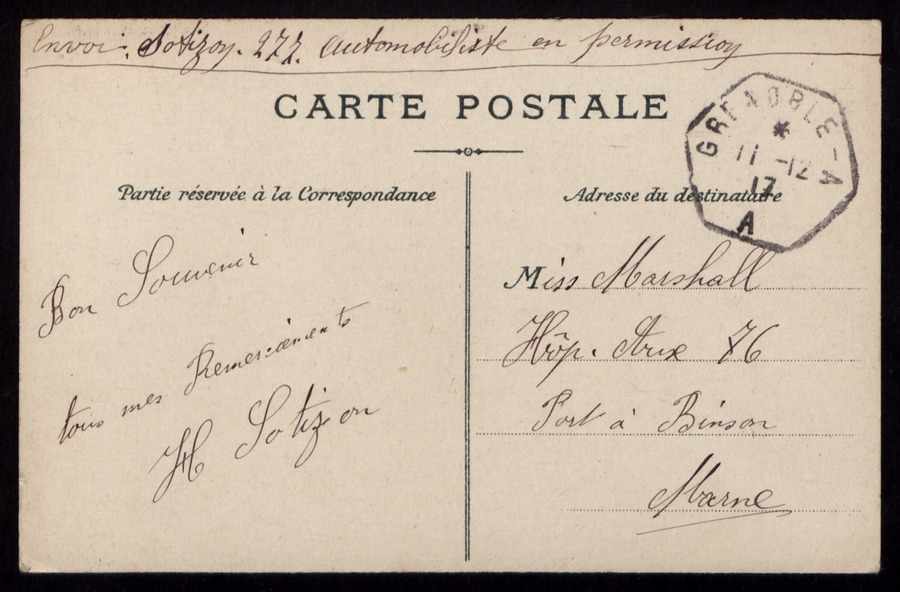 Envoi: Sotizon. 277. automobiliste en permission
CARTE POSTALE
GRENOBLE-A
*
11 -12
17
A
Partie réservée à la Correspondance
Adresse du destinataire
Bon Souvenir
tous mes Remerciements
H Sotizon
Miss Marshall
Hôp. Aux 76
Port à Binson
Marne